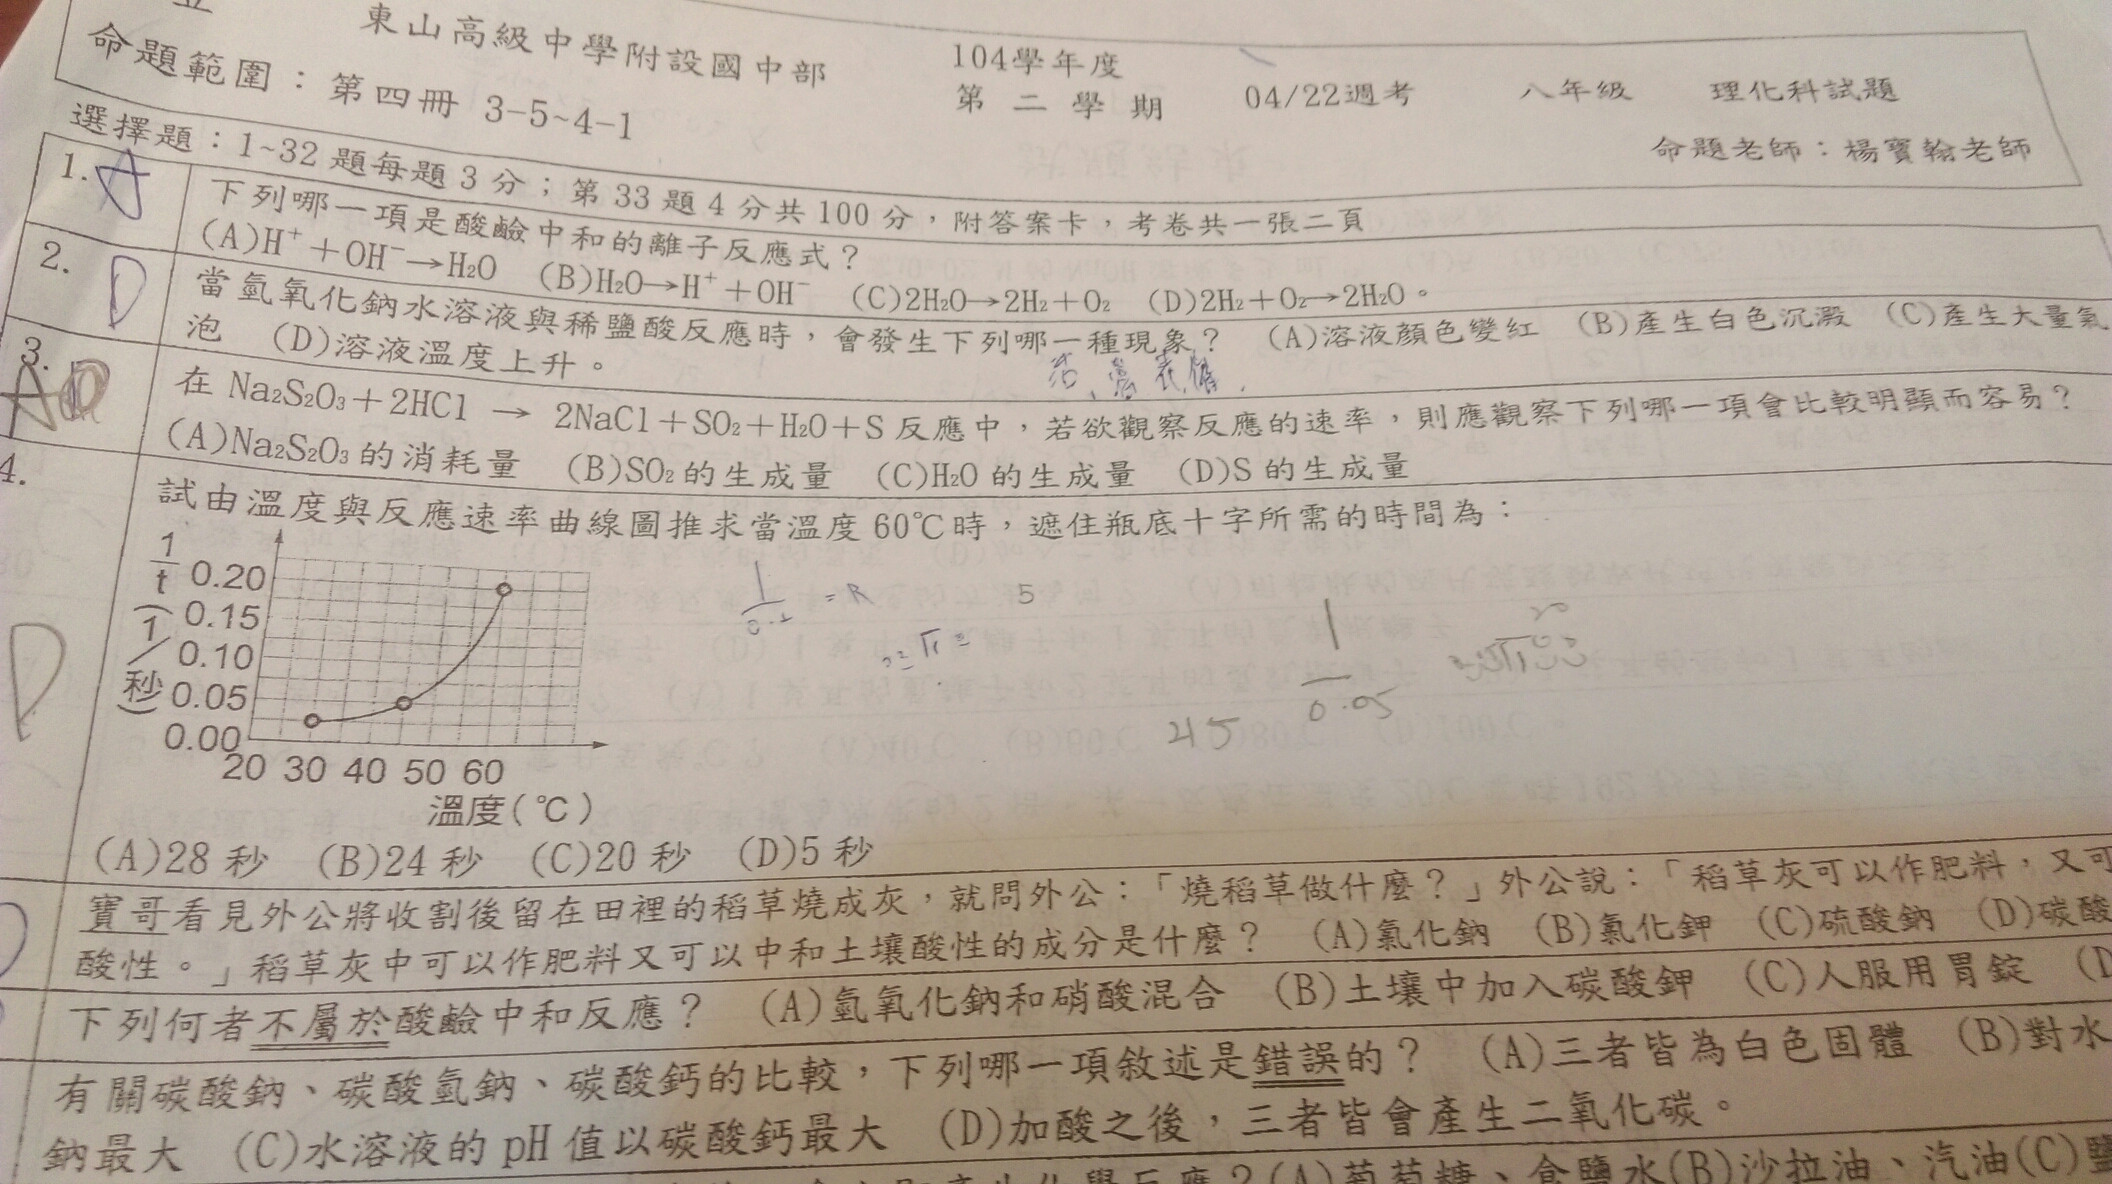 東山高級中學附設國中部
104學年度
第二學期
04/22週考
八年級
理化科試題
命題範圍：第四冊 3-5~4-1
命題老師：楊寶翰老師
選擇題：1~32題每題3分；第33題4分共100分，附答案卡，考卷共一張二頁
1. A
下列哪一項是酸鹼中和的離子反應式？
(A)H⁺＋OH⁻→H₂O (B)H₂O→H⁺＋OH⁻ (C)2H₂O→2H₂＋O₂ (D)2H₂＋O₂→2H₂O。
2. D
當氫氧化鈉水溶液與稀鹽酸反應時，會發生下列哪一種現象？ (A)溶液顏色變紅 (B)產生白色沉澱 (C)產生大量氣
泡 (D)溶液溫度上升。
3.
在 Na₂S₂O₃＋2HCl → 2NaCl＋SO₂＋H₂O＋S 反應中，若欲觀察反應的速率，則應觀察下列哪一項會比較明顯而容易？
(A)Na₂S₂O₃的消耗量 (B)SO₂的生成量 (C)H₂O的生成量 (D)S的生成量
4.
試由溫度與反應速率曲線圖推求當溫度60℃時，遮住瓶底十字所需的時間為：
1/t (1/秒)
0.20
0.15
0.10
0.05
0.00
20 30 40 50 60
溫度(℃)
= R
5
1
0.05
45
D
(A)28秒 (B)24秒 (C)20秒 (D)5秒
寶哥看見外公將收割後留在田裡的稻草燒成灰，就問外公：「燒稻草做什麼？」外公說：「稻草灰可以作肥料，又可
酸性。」稻草灰中可以作肥料又可以中和土壤酸性的成分是什麼？ (A)氯化鈉 (B)氯化鉀 (C)硫酸鈉 (D)碳酸
下列何者不屬於酸鹼中和反應？ (A)氫氧化鈉和硝酸混合 (B)土壤中加入碳酸鉀 (C)人服用胃錠 (D
有關碳酸鈉、碳酸氫鈉、碳酸鈣的比較，下列哪一項敘述是錯誤的？ (A)三者皆為白色固體 (B)對水
鈉最大 (C)水溶液的pH值以碳酸鈣最大 (D)加酸之後，三者皆會產生二氧化碳。
產生化學反應？(A)葡萄糖、食鹽水(B)沙拉油、汽油(C)鹽